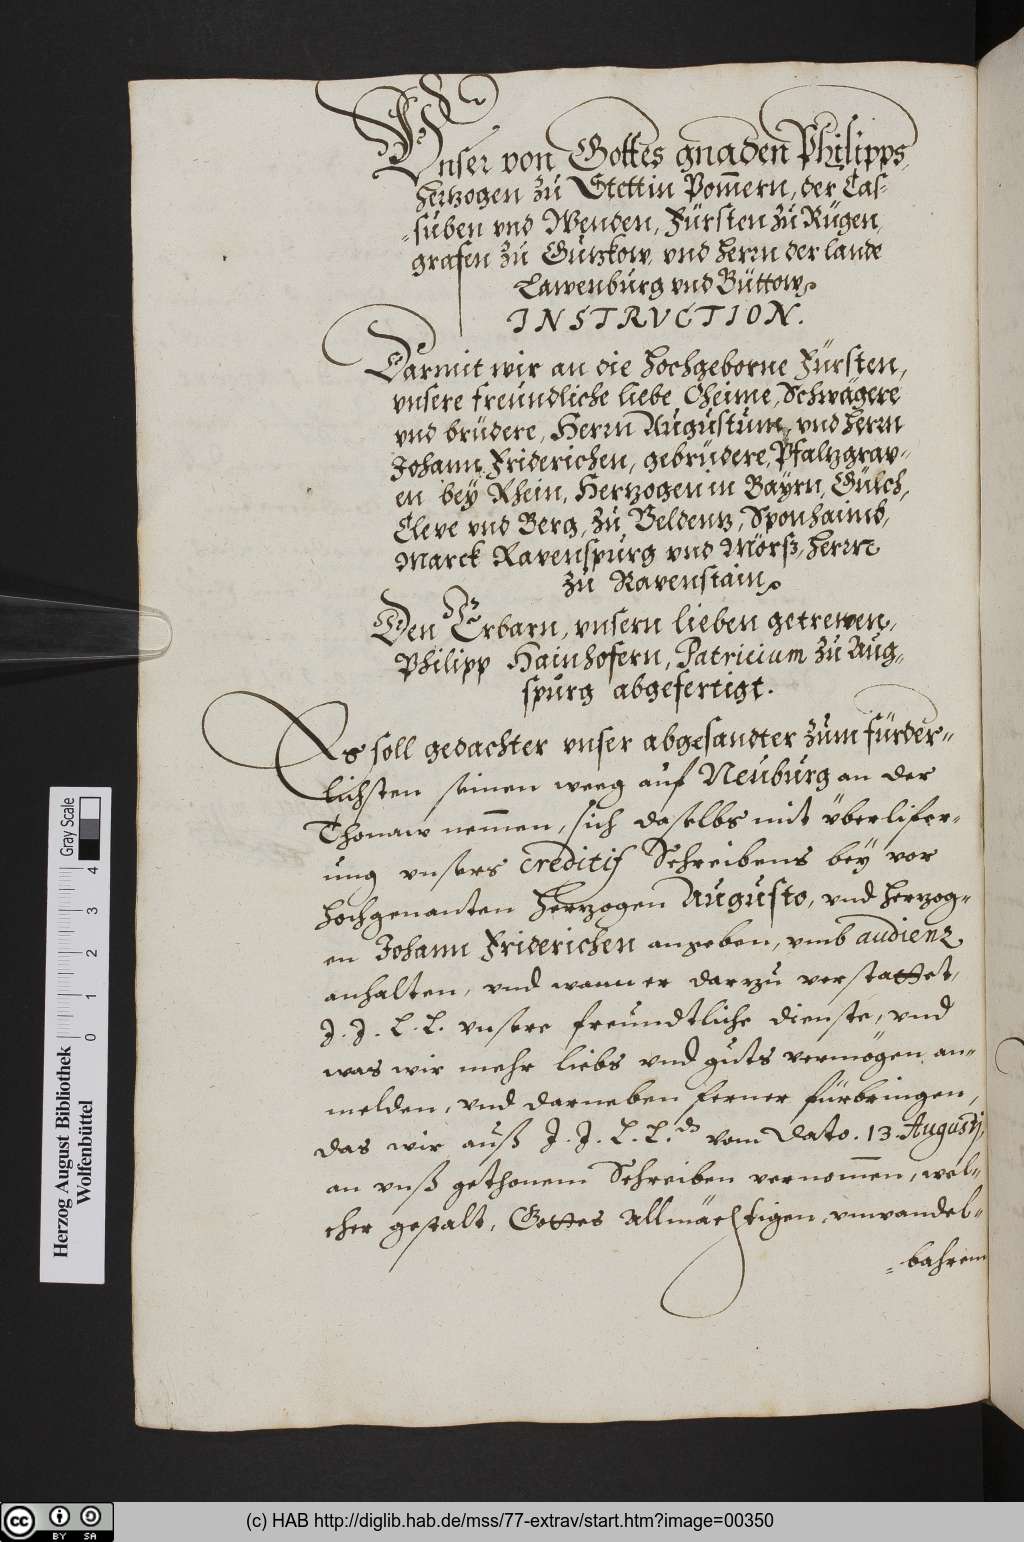 Vnser von Gottes gnaden Philipps,
hertzogen zu Stettin Pom̄ern, der Cas-
-suben vnd Wenden, Fürsten zu Rügen,
grafen zu Gützkow, vnd herrn der lande
Lawenburg vnd Büttow.
INSTRVCTION.
Darmit wir an die hochgeborne Fürsten,
vnsere freundliche liebe Oheime, Schwägere
vnd brüdere, Herrn Augustum, vnd herrn
Johann Friderichen, gebrüdere, Pfaltzgrav-
en bey Rhein, Hertzogen in Bayrn, Gülch,
Cleve vnd Berg, zu Veldentz, Sponhaimb,
Marck Ravenspurg vnd Mörß, herrn
zu Ravenstain.
Den Erbarn, vnsern lieben getrewen,
Philipp Hainhofern, Patricium zu Aug-
spurg abgefertigt.
Es soll gedachter vnser abgesandter zum fürder-
lichsten seinen weeg auf Neuburg an der
Thonaw nem̄en, sich daselbs mit überlifer-
ung vnsers creditif Schreibens bey vor
hochgenanten herzogen Augusto, vnd herzog-
en Johann Friderichen angeben, vmb audienz
anhalten, vnd wann er darzu verstattet,
J. J. L. L. vnsere freundtliche dienste, vnd
was wir mehr liebs vnd guts vermögen, an-
melden, vnd darneben ferner fürbringen,
das wir auß J. J. L. L. vom Dato. 13. Augusti,
an vnß gethonem Schreiben vernom̄en, wel-
cher gestalt, Gottes Allmächtigen, vnwandel-
-bahrem
Herzog August Bibliothek
Wolfenbüttel
0 1 2 3 4
Gray Scale
cc BY SA
(c) HAB http://diglib.hab.de/mss/77-extrav/start.htm?image=00350